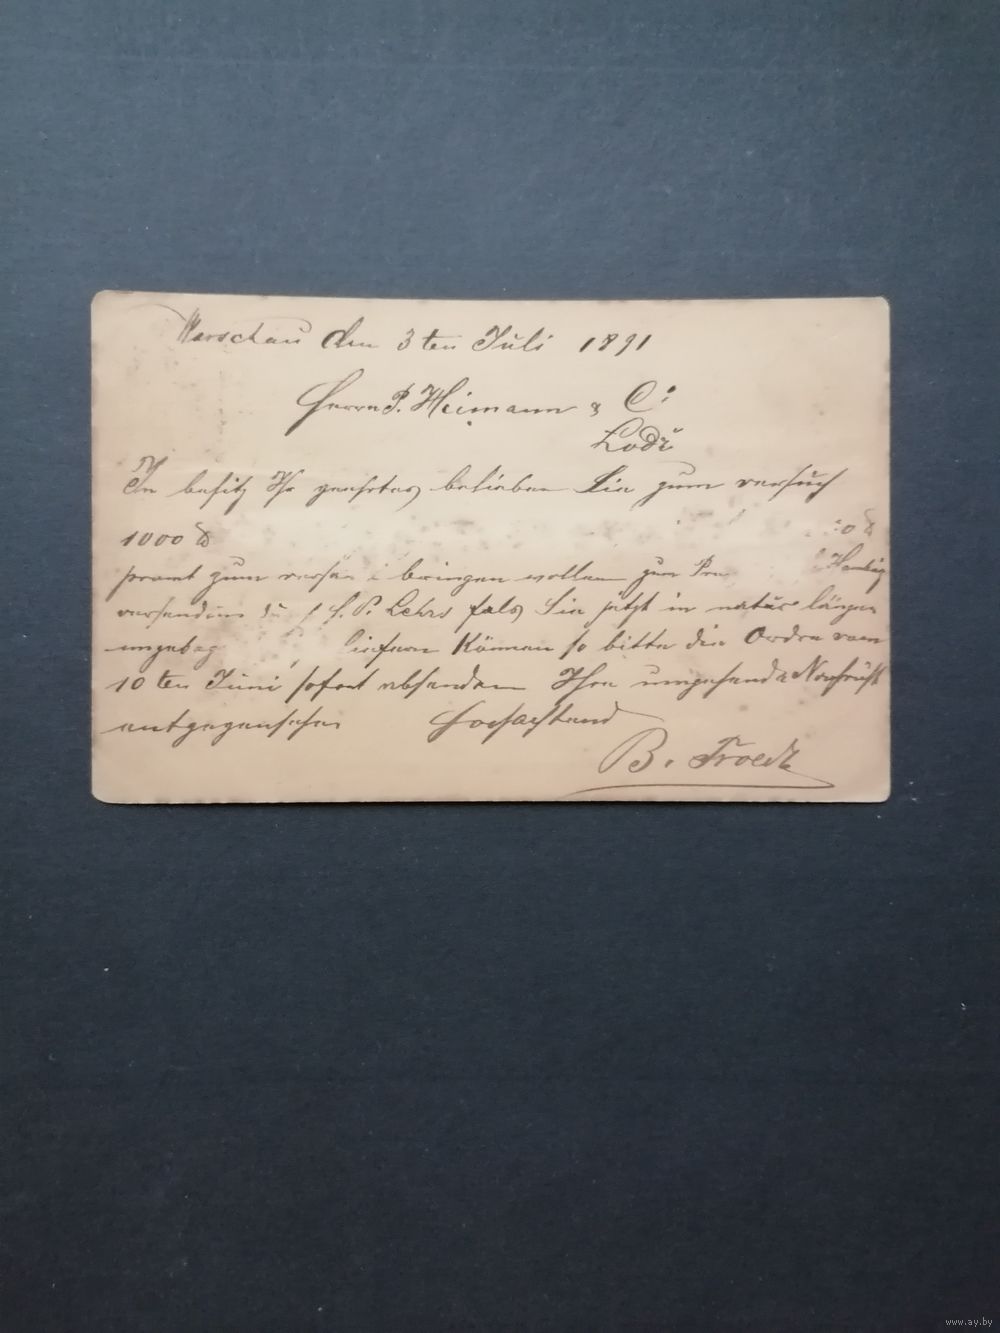 Warschau den 3ten Juli 1891
Herrn P. Heimann & C:
Lodz
In besitz Ihr geehrtes belieben Sie zum versuch
1000 ₰
promt zum bringen wollen zum
versenden falls Sie jetzt in natur längen
liefern können so bitte die Ordre vom
10ten Juni sofort absenden Ihre umgehende Nachricht
entgegensehen Hochachtend
B. Troedt
www.ay.by